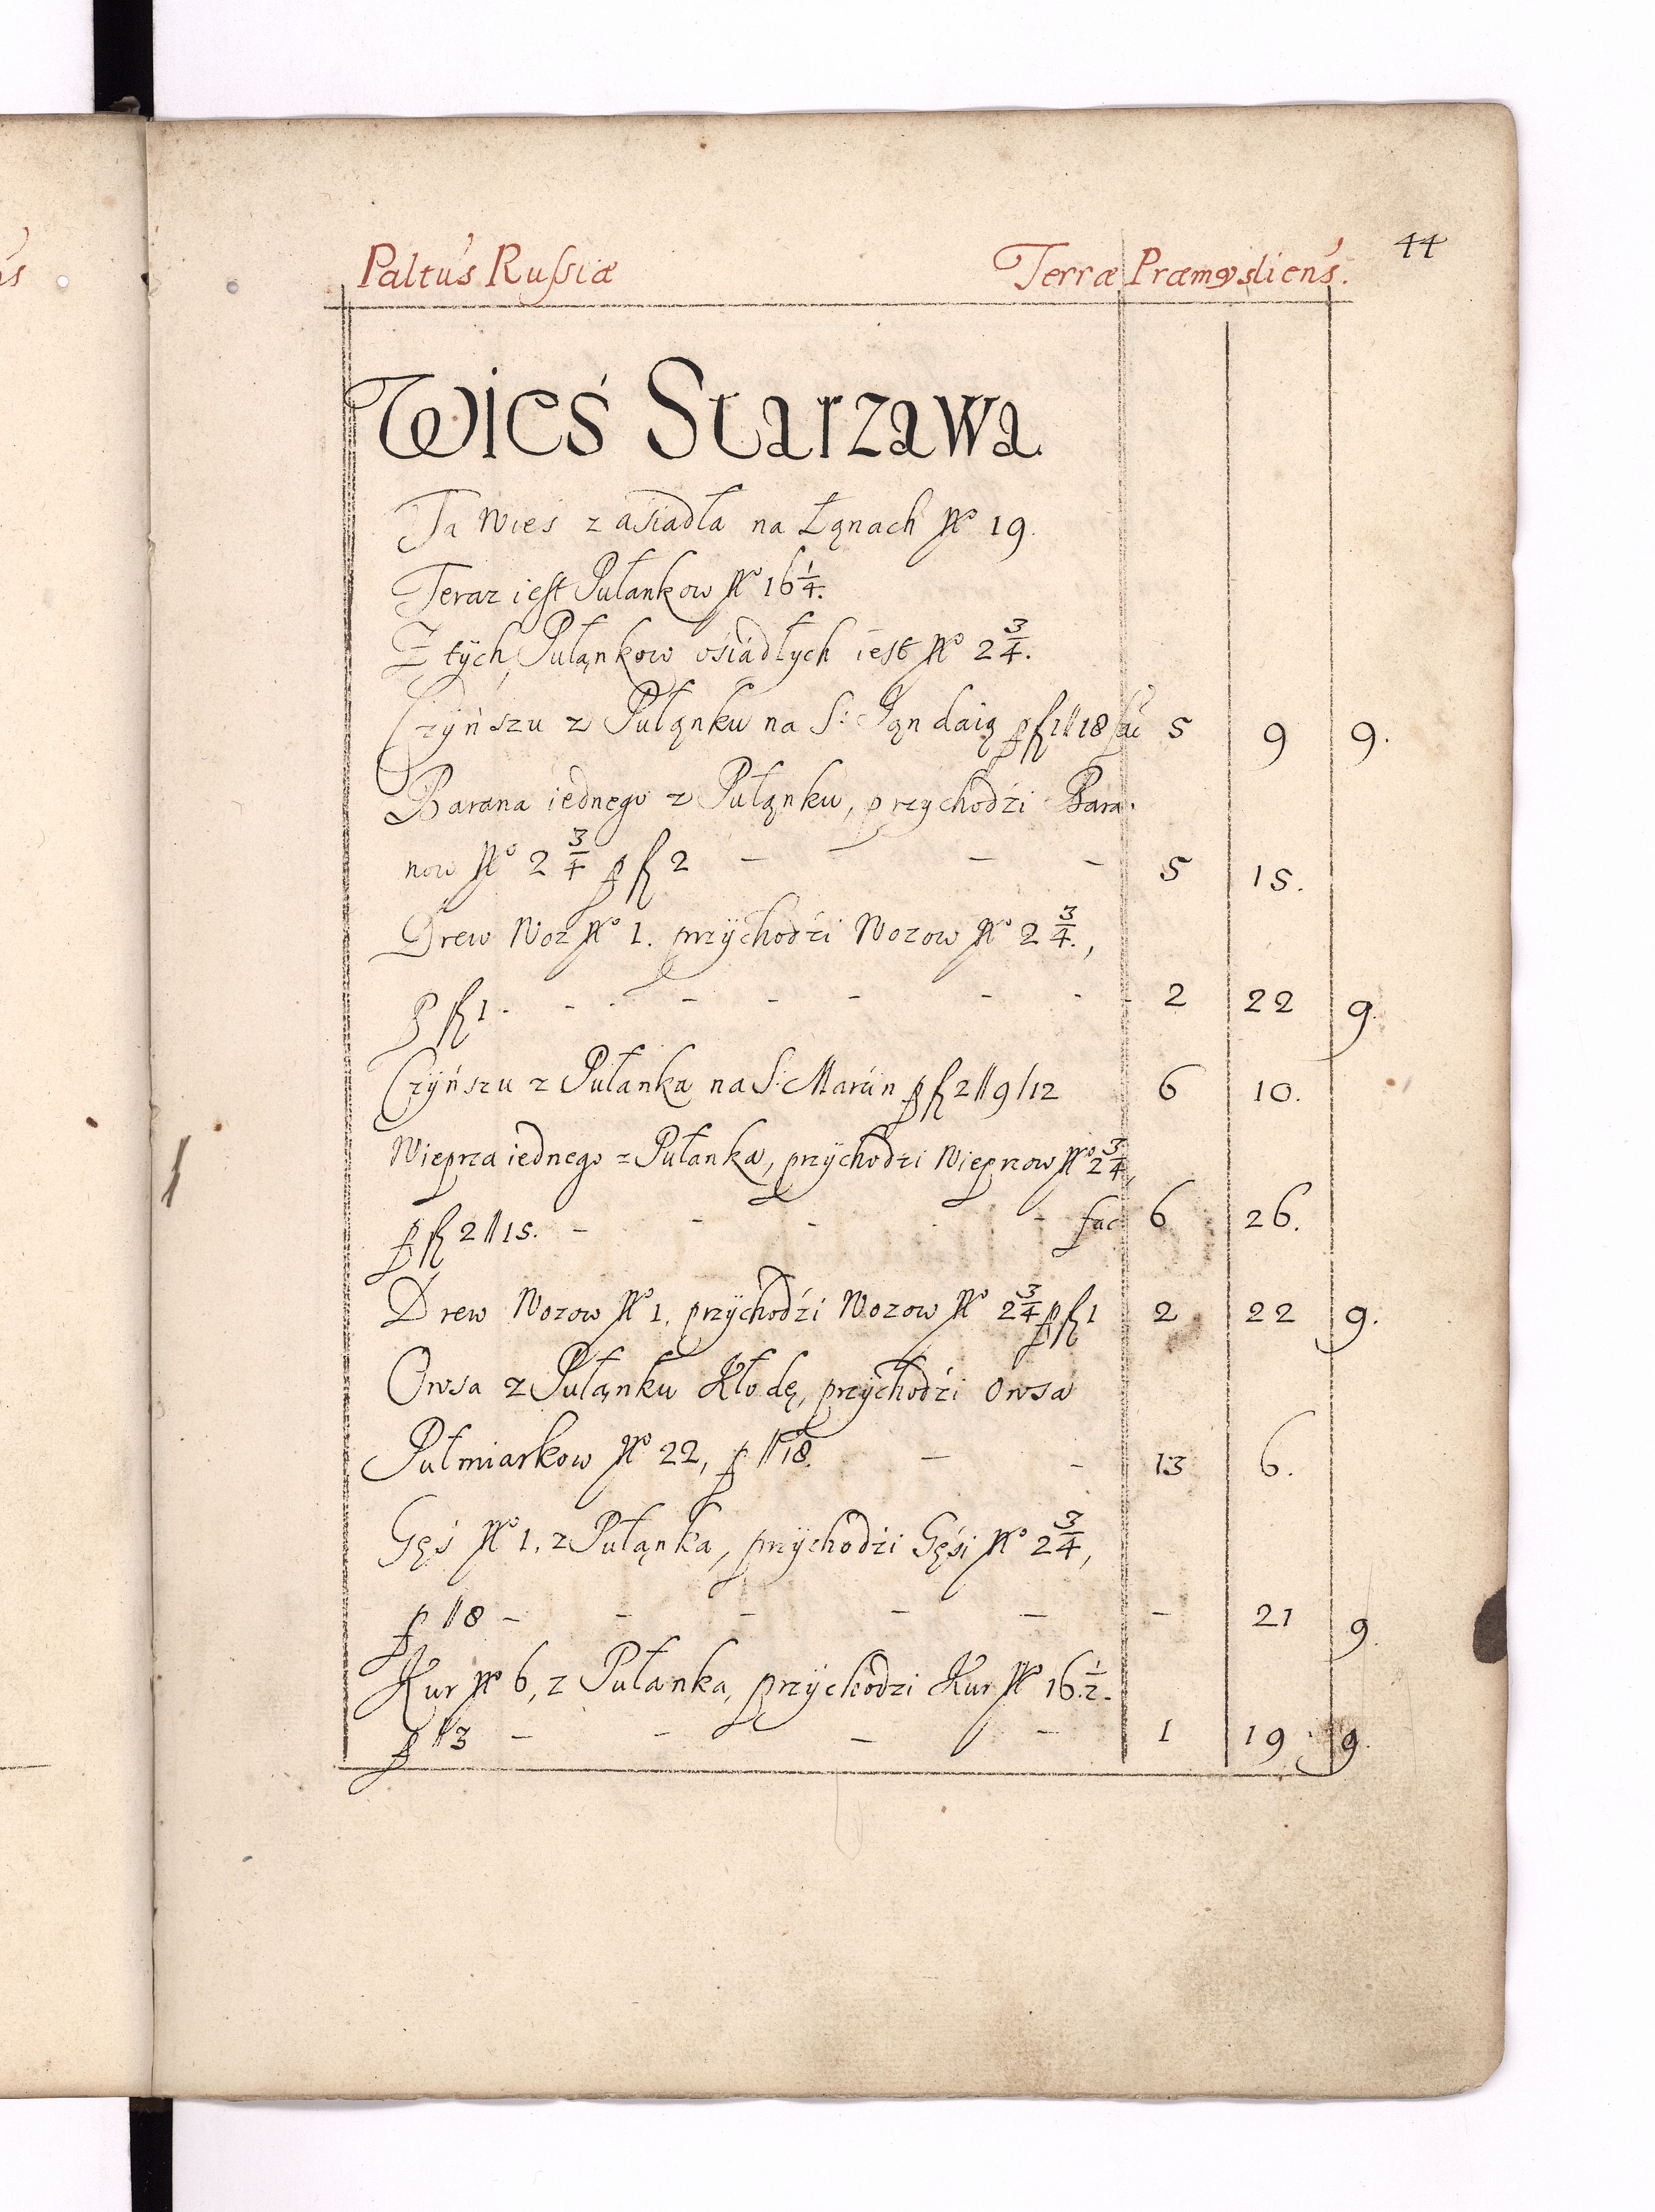 Paltus Russiæ Terræ Præmysliens. 44
Wieś Starzawa
Ta Wies zasiadła na Łąnach No 19.
Teraz iest Pułankow No 16 1/4.
Z tÿch Pułąnkow osiadłych iest No 2 3/4.
Czÿńszu z Pułąnku na S: Jąn daią p fl 1 || 18 fac 5 9 9.
Barana iednego z Pułąnku, przychodźi Bara-
now No 2 3/4 p fl 2 - - - - 5 15.
Drew Woz No 1. przÿchodźi Wozow No 2 3/4.,
p fl 1. - - - - - - - 2 22 9.
Czÿńszu z Pułanku na S: Marćin p fl 2 || 9 / 12 6 10.
Wieprza iednego z Pułanka, przÿchodzi Wieprzow No 2 3/4,
p fl 2 || 15. - - - - fac 6 26.
Drew Wozow No 1. przÿchodźi Wozow No 2 3/4 p fl 1 2 22 9.
Owsa z Pułąnku Kłodę, przÿchodźi Owsa
Pułmiarkow No 22, p || 18. - - 13 6.
Gęś No 1. z Pułąnka, przÿchodźi Gęśi No 2 3/4,
p || 8 - - - - - - 21 9.
Kur No 6, z Pułanka, przÿchodzi Kur No 16 1/2.
p || 3 - - - - 1 19 9.